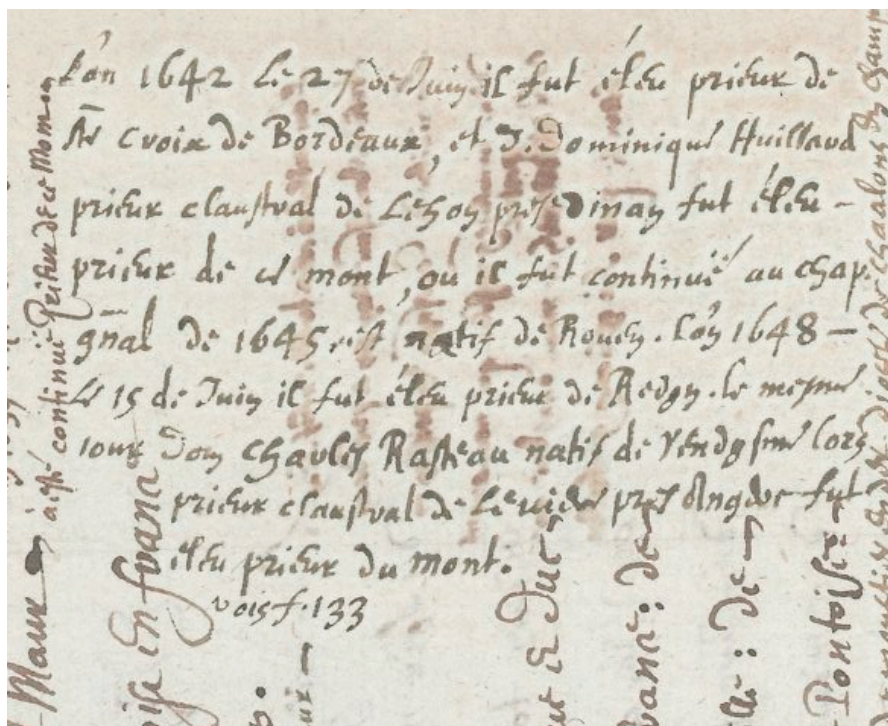 L'an 1642 le 27 de Juin il fut éleu prieur de
ste Croix de Bordeaux, et D. Dominique Huillard
prieur claustral de Lehon pres Dinan fut éleu -
prieur de ce mont, ou il fut continué au chap.
gñal de 1645 est natif de Rouen. L'an 1648 -
Le 15 de Juin il fut éleu prieur de Redon. le mesme
iour Dom Charles Rasteau natif de Vendosme lors
prieur claustral de Leuiere pres Angers fut
éleu prieur du mont.
vois f. 133
à esté continué Prieur de ce Mom
Maur
en franc
et Duc
: de
: de
Pontoise
de Chaalons